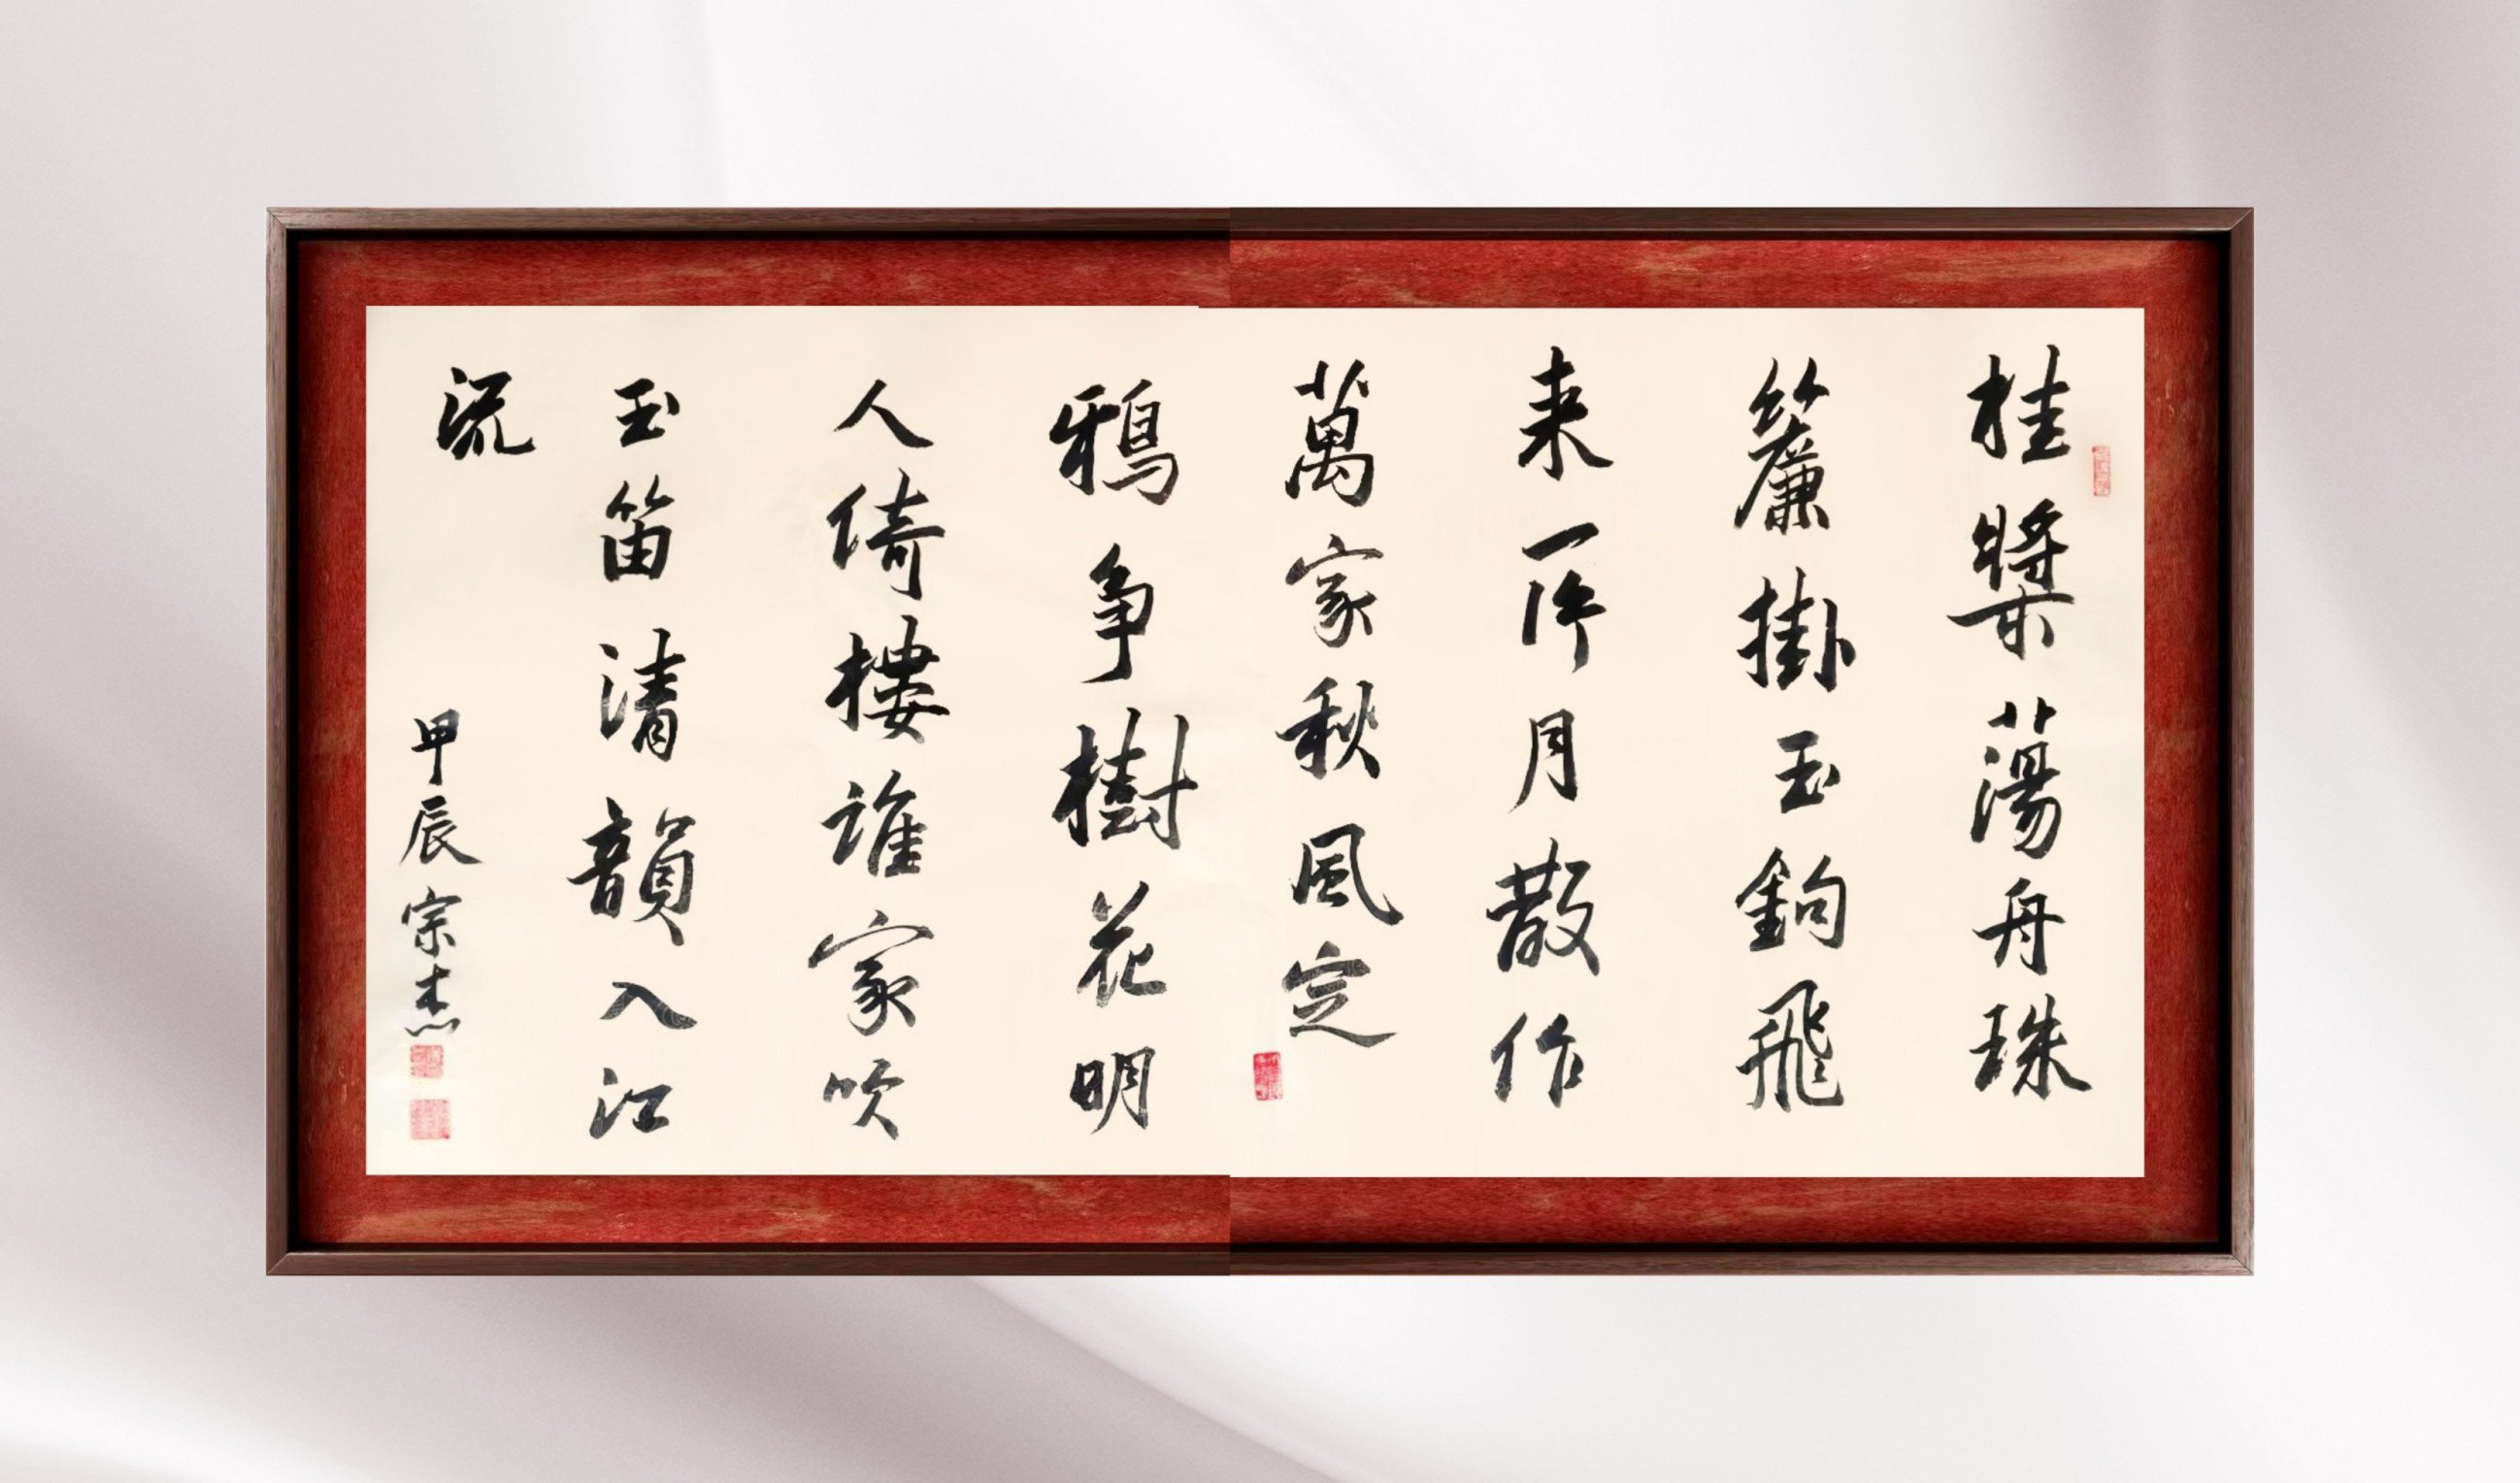 桂槳蕩舟珠
簾掛玉鉤飛
来一片月散作
萬家秋風定
鴉争樹花明
人倚樓誰家吹
玉笛清韻入江
流
甲辰宗杰